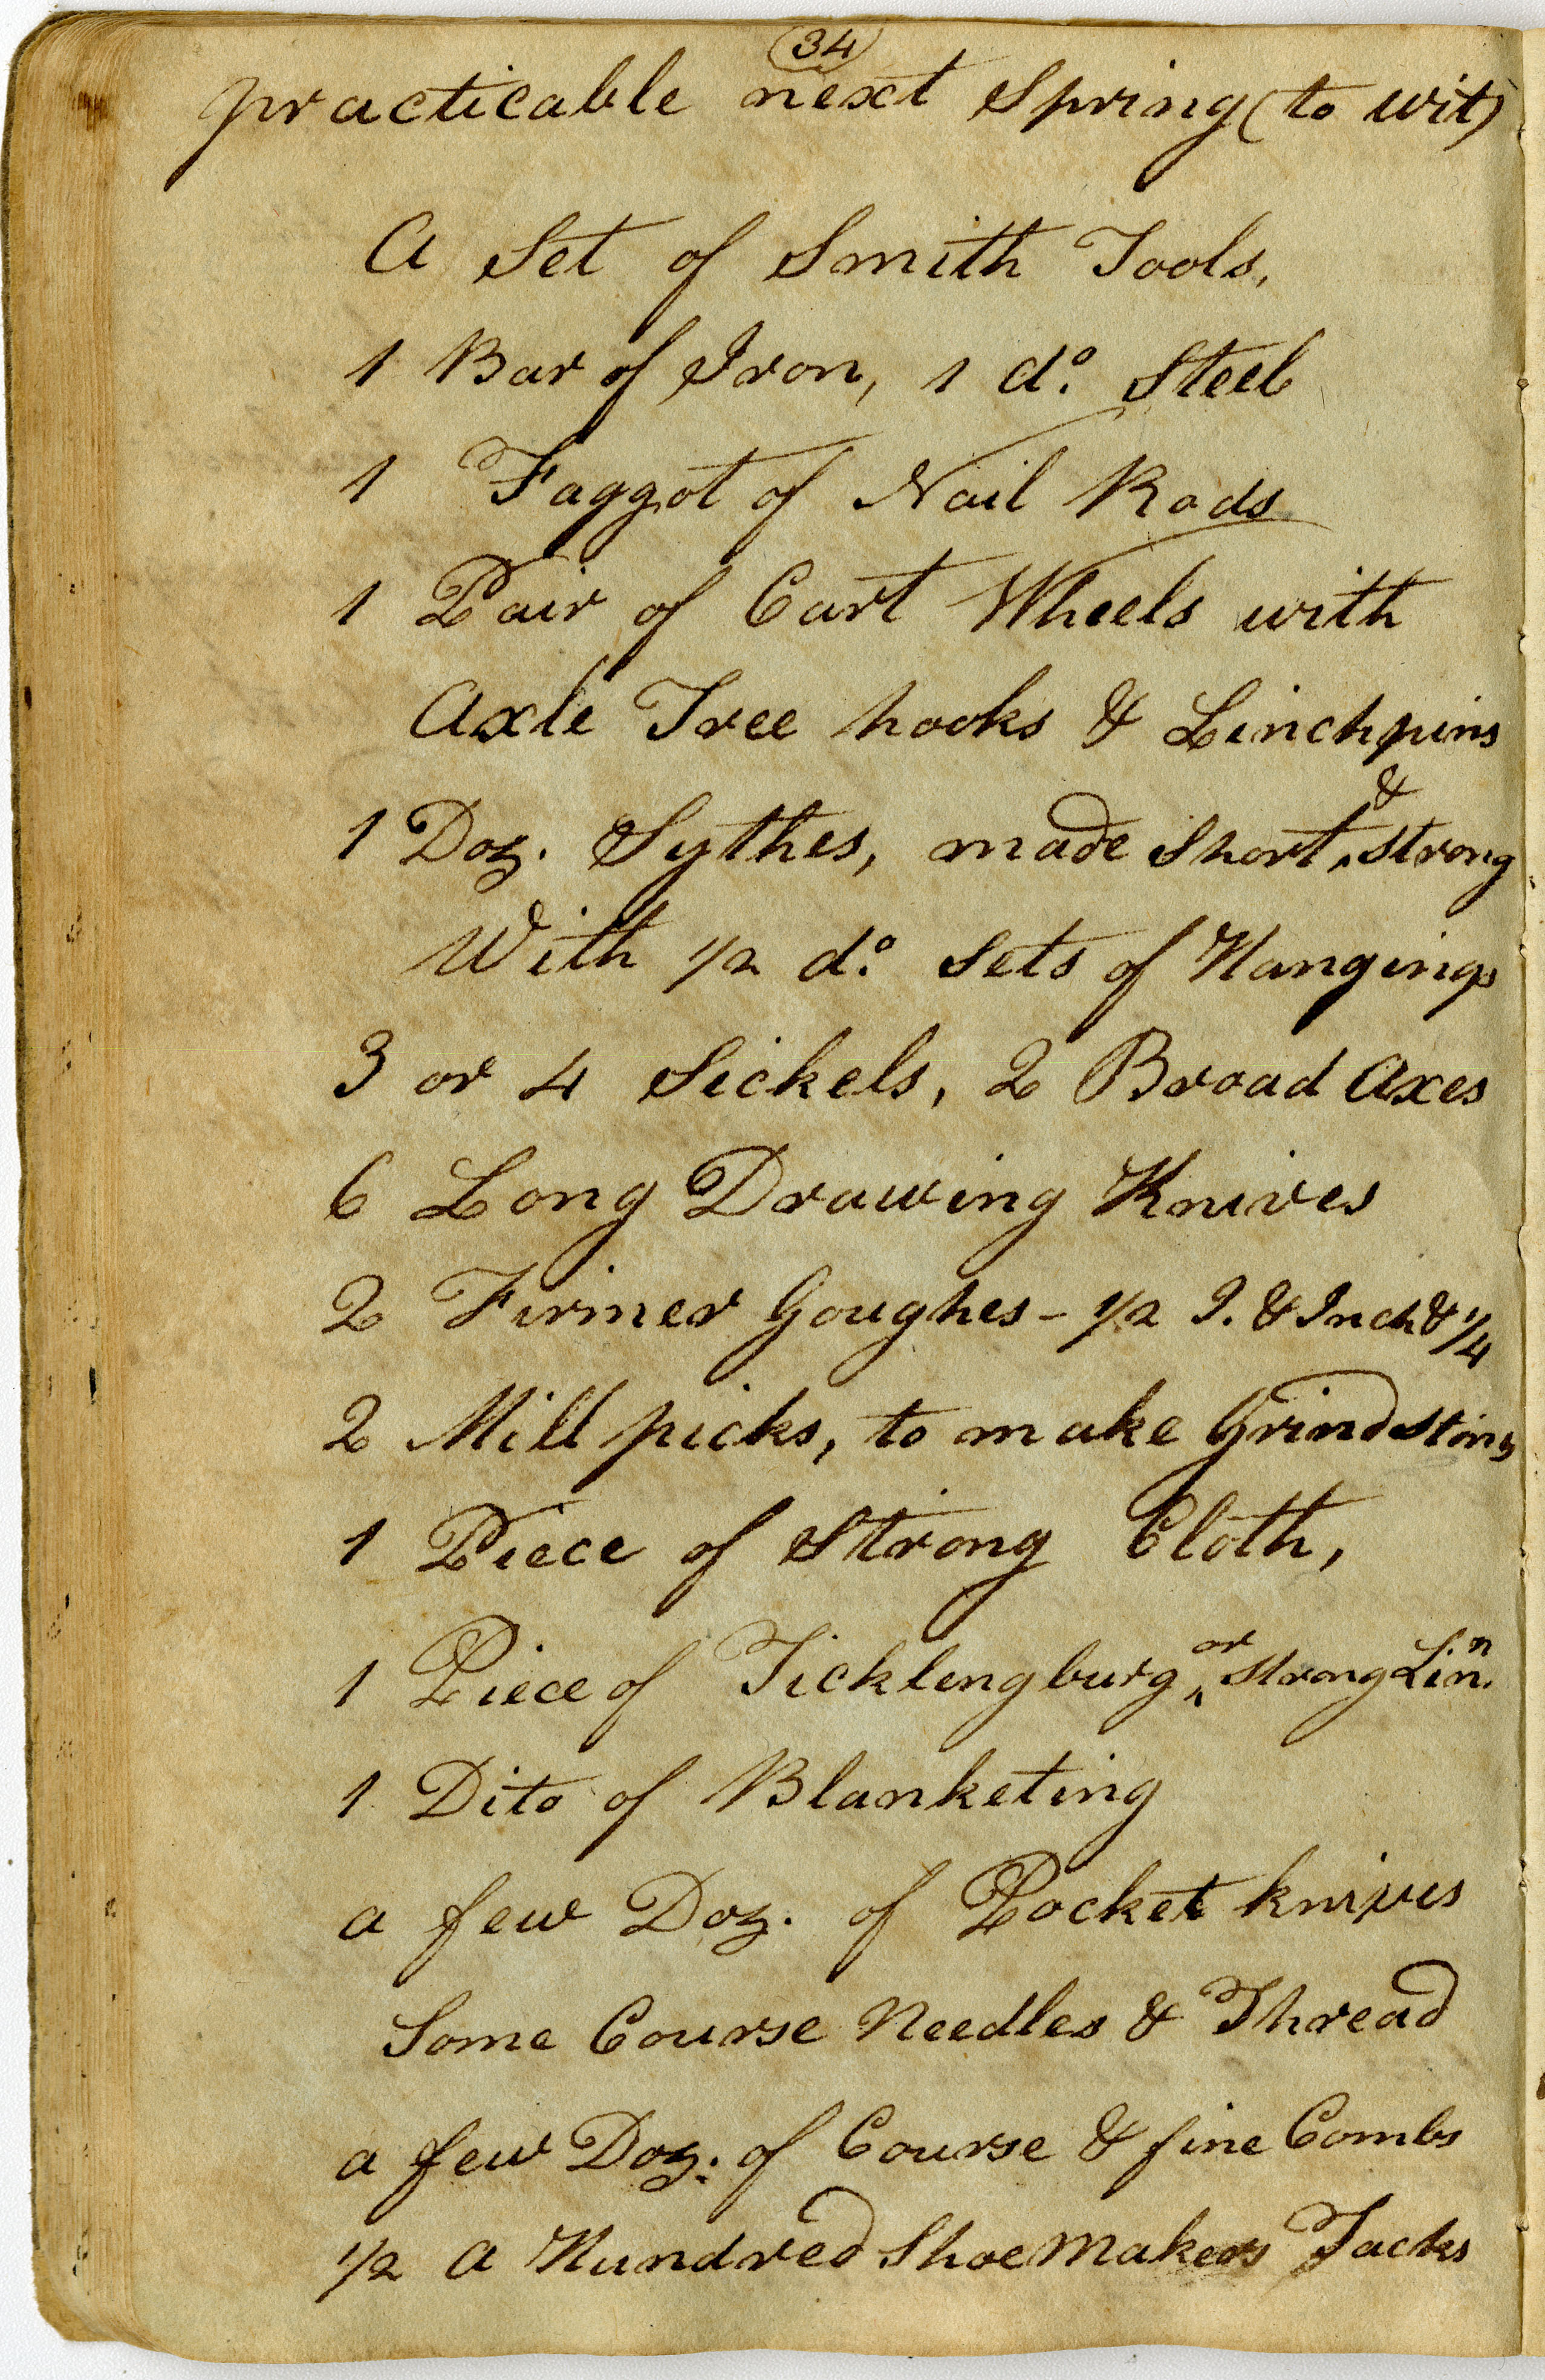 34
practicable next Spring (to wit)
A Set of Smith Tools,
1 Bar of Iron, 1 do. Steel
1 Faggot of Nail Rods
1 Pair of Cart Wheels with
Axle Tree hooks & Linchpins
1 Doz. Sythes, made Short & strong
With 1/2 do. Sets of Hangings
3 or 4 Sickels, 2 Broad Axes
6 Long Drawing Knives
2 Firmer Goughes - 1/2 I. & Inch & 1/4
2 Mill picks, to make Grindstons
1 Piece of Strong Cloth,
1 Piece of Ticklengburg or strong Lin.n
1 Dito of Blanketing
a few Doz. of Pocket knives
Some Course Needles & Thread
a few Doz. of Course & fine Combs
1/2 a Hundred Shoemakers Tacks